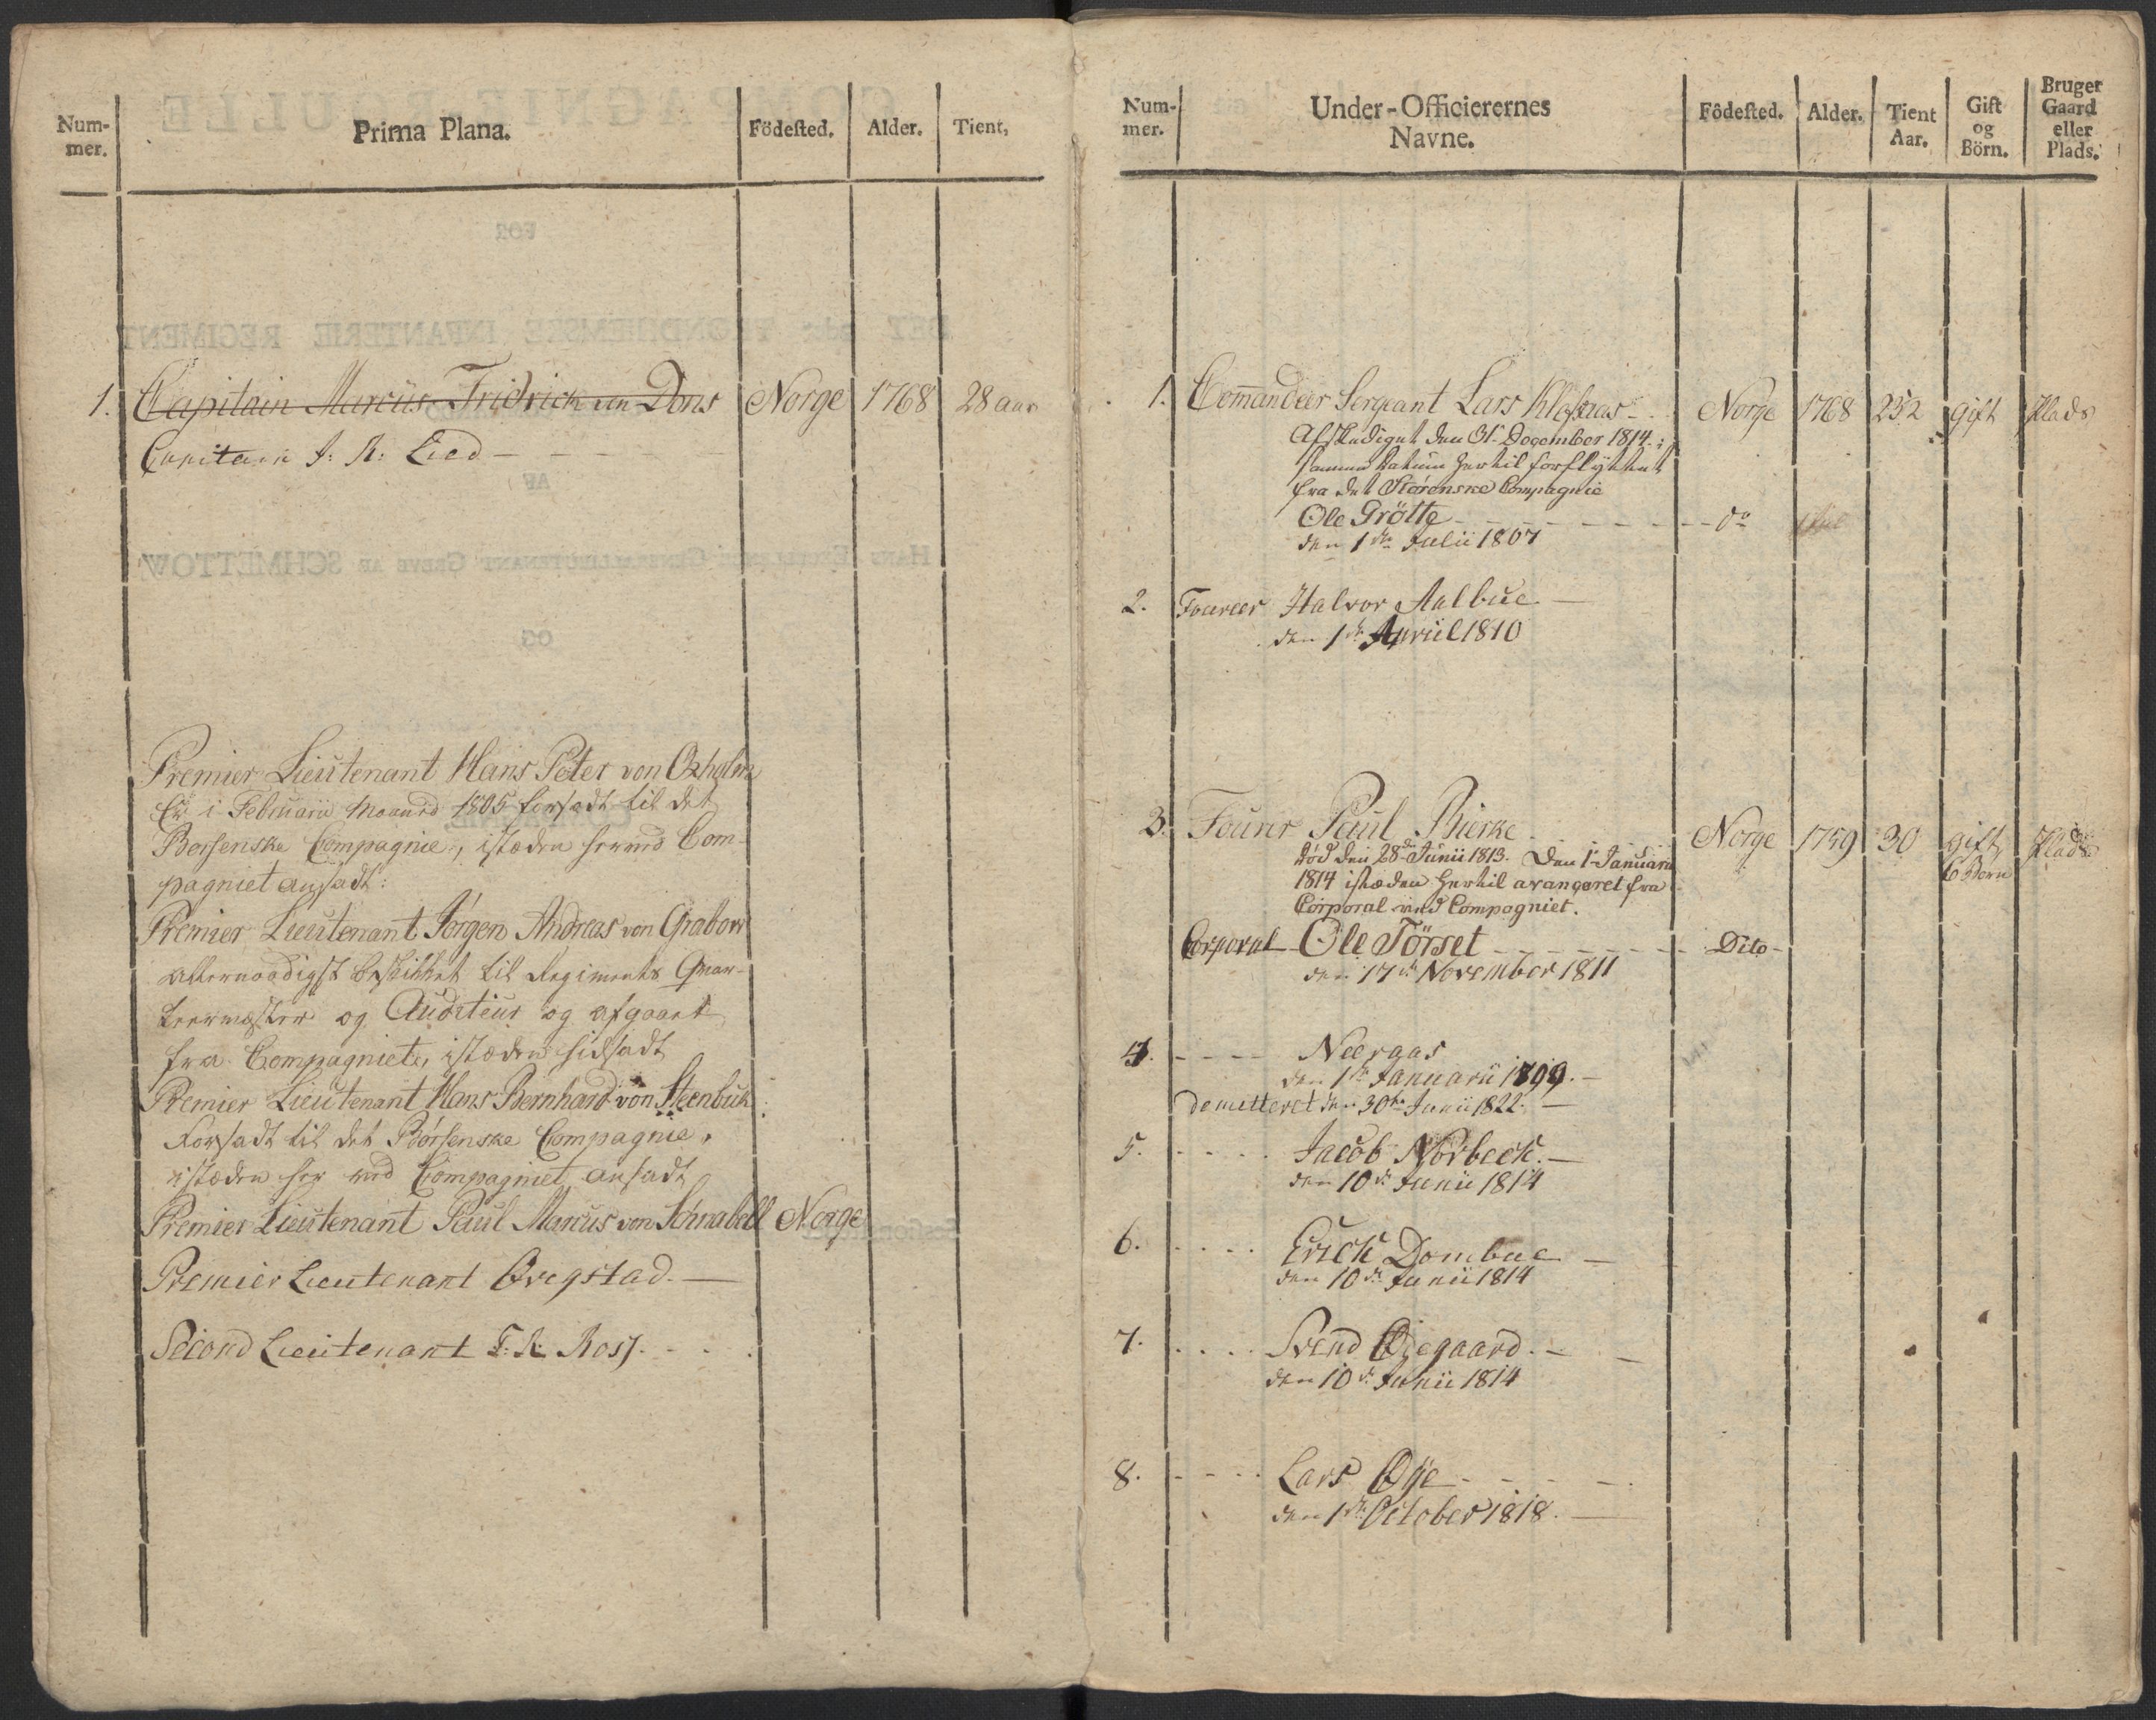 Num-
mer.
Prima Plana.
Födested.
Alder.
Tient,
1. Capitain Marcus Fridrich von Dons Norge 1768 28 aar
Capitain J: R: Lied
Premier Lieutenant Hans Peter von Oxholm
Er i Februarii Maaned 1805 forsadt til det
Børsenske Compagnie, isteden herved Com-
pagniet ansadt:
Premier Lieutenant Jörgen Andreas von Grabow
allernaadigst beskikket til Regiments Quar-
teermester og Auditeur og afgaaet
fra Compagniet, isteden hidsadt
Premier Lieutenant Hans Bernhard von Steenbuch
Forsadt til det Börsenske Compagnie,
isteden her ved Compagniet ansadt
Premier Lieutenant Paul Marcus von Schnabell Norge
Premier Lieutenant Bregstad.
Second Lieutenant T. R. Ross.
Num-
mer.
Under-Officierernes
Navne.
Födested.
Alder.
Tient
Aar.
Gift
og
Börn.
Bruger
Gaard
eller
Plads.
1. Commandeer Sergeant Lars Norge 1768 gift Plads
Afskediget den 31 December 1814.
samme datum hertil forflyttet
fra det Størenske Compagnie
Ole Grötte do
den 1de Julii 1807
2. Foureer Halvor Aalbue
den 1de Apriil 1810
3. Fourer Paul Bierke Norge 1759 30 gift Plads
6 Börn
död den 28de Junii 1813. Den 1 Januarii
1814 isteden hertil arangeret fra
Corporal ved Compagniet.
Corporal Ole Törset Dito
den 17de November 1811
4. Neergas
den 1de Januarii 1799.
demitteret den 30te Junii 1822.
5. Jacob Norbeck.
den 10de Junii 1814
6. Erick Dombue
den 10de Junii 1814
7. Svend Øjegaard.
den 10de Junii 1814
8. Lars Øje
den 1de October 1818.